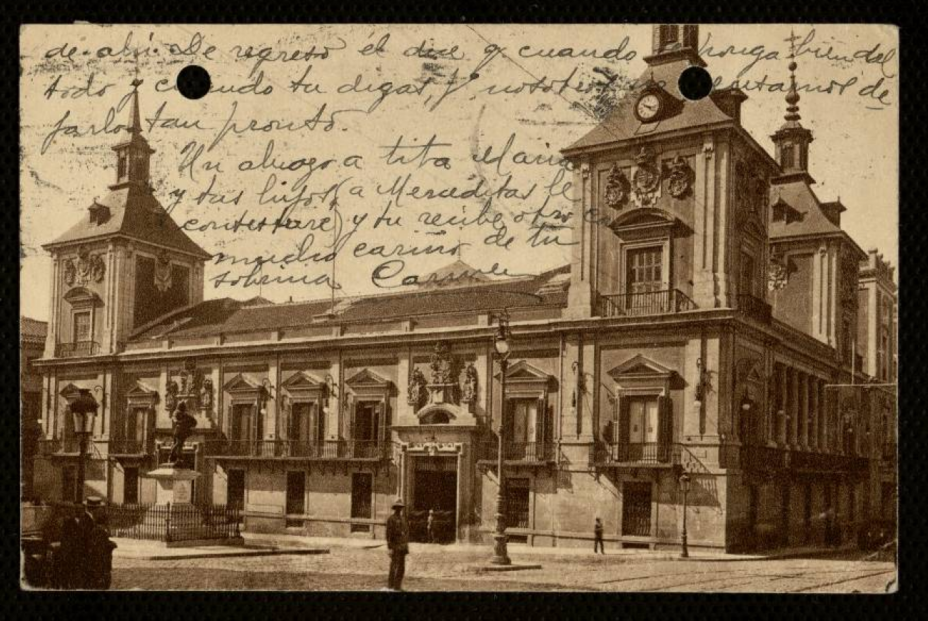 de ahi. De regreso él dice q cuando venga bien del
todo y cuando tu digas, y nosotros sentarnos de
farlos tan pronto.
Un abrazo a tita Maria
y tus hijos (a Merceditas le
contestaré) y tu recibe otro con
mucho cariño de tu
sobrina Carmele